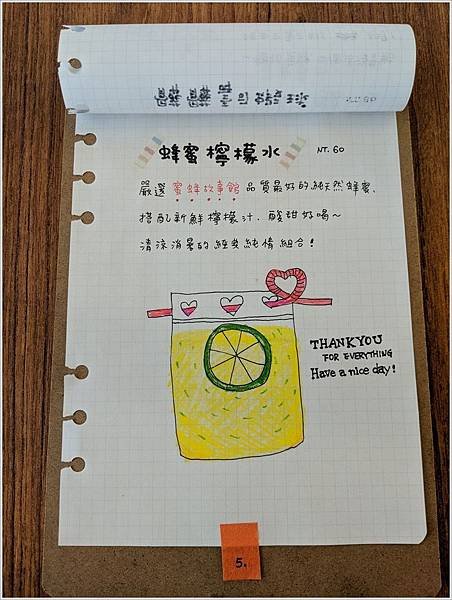 蜂蜜檸檬水 NT.60
嚴選蜜蜂故事館品質最好的純天然蜂蜜、
搭配新鮮檸檬汁、酸甜好喝~
清涼消暑的經典純情組合!
THANKYOU
FOR EVERYTHING
Have a nice day!
5.